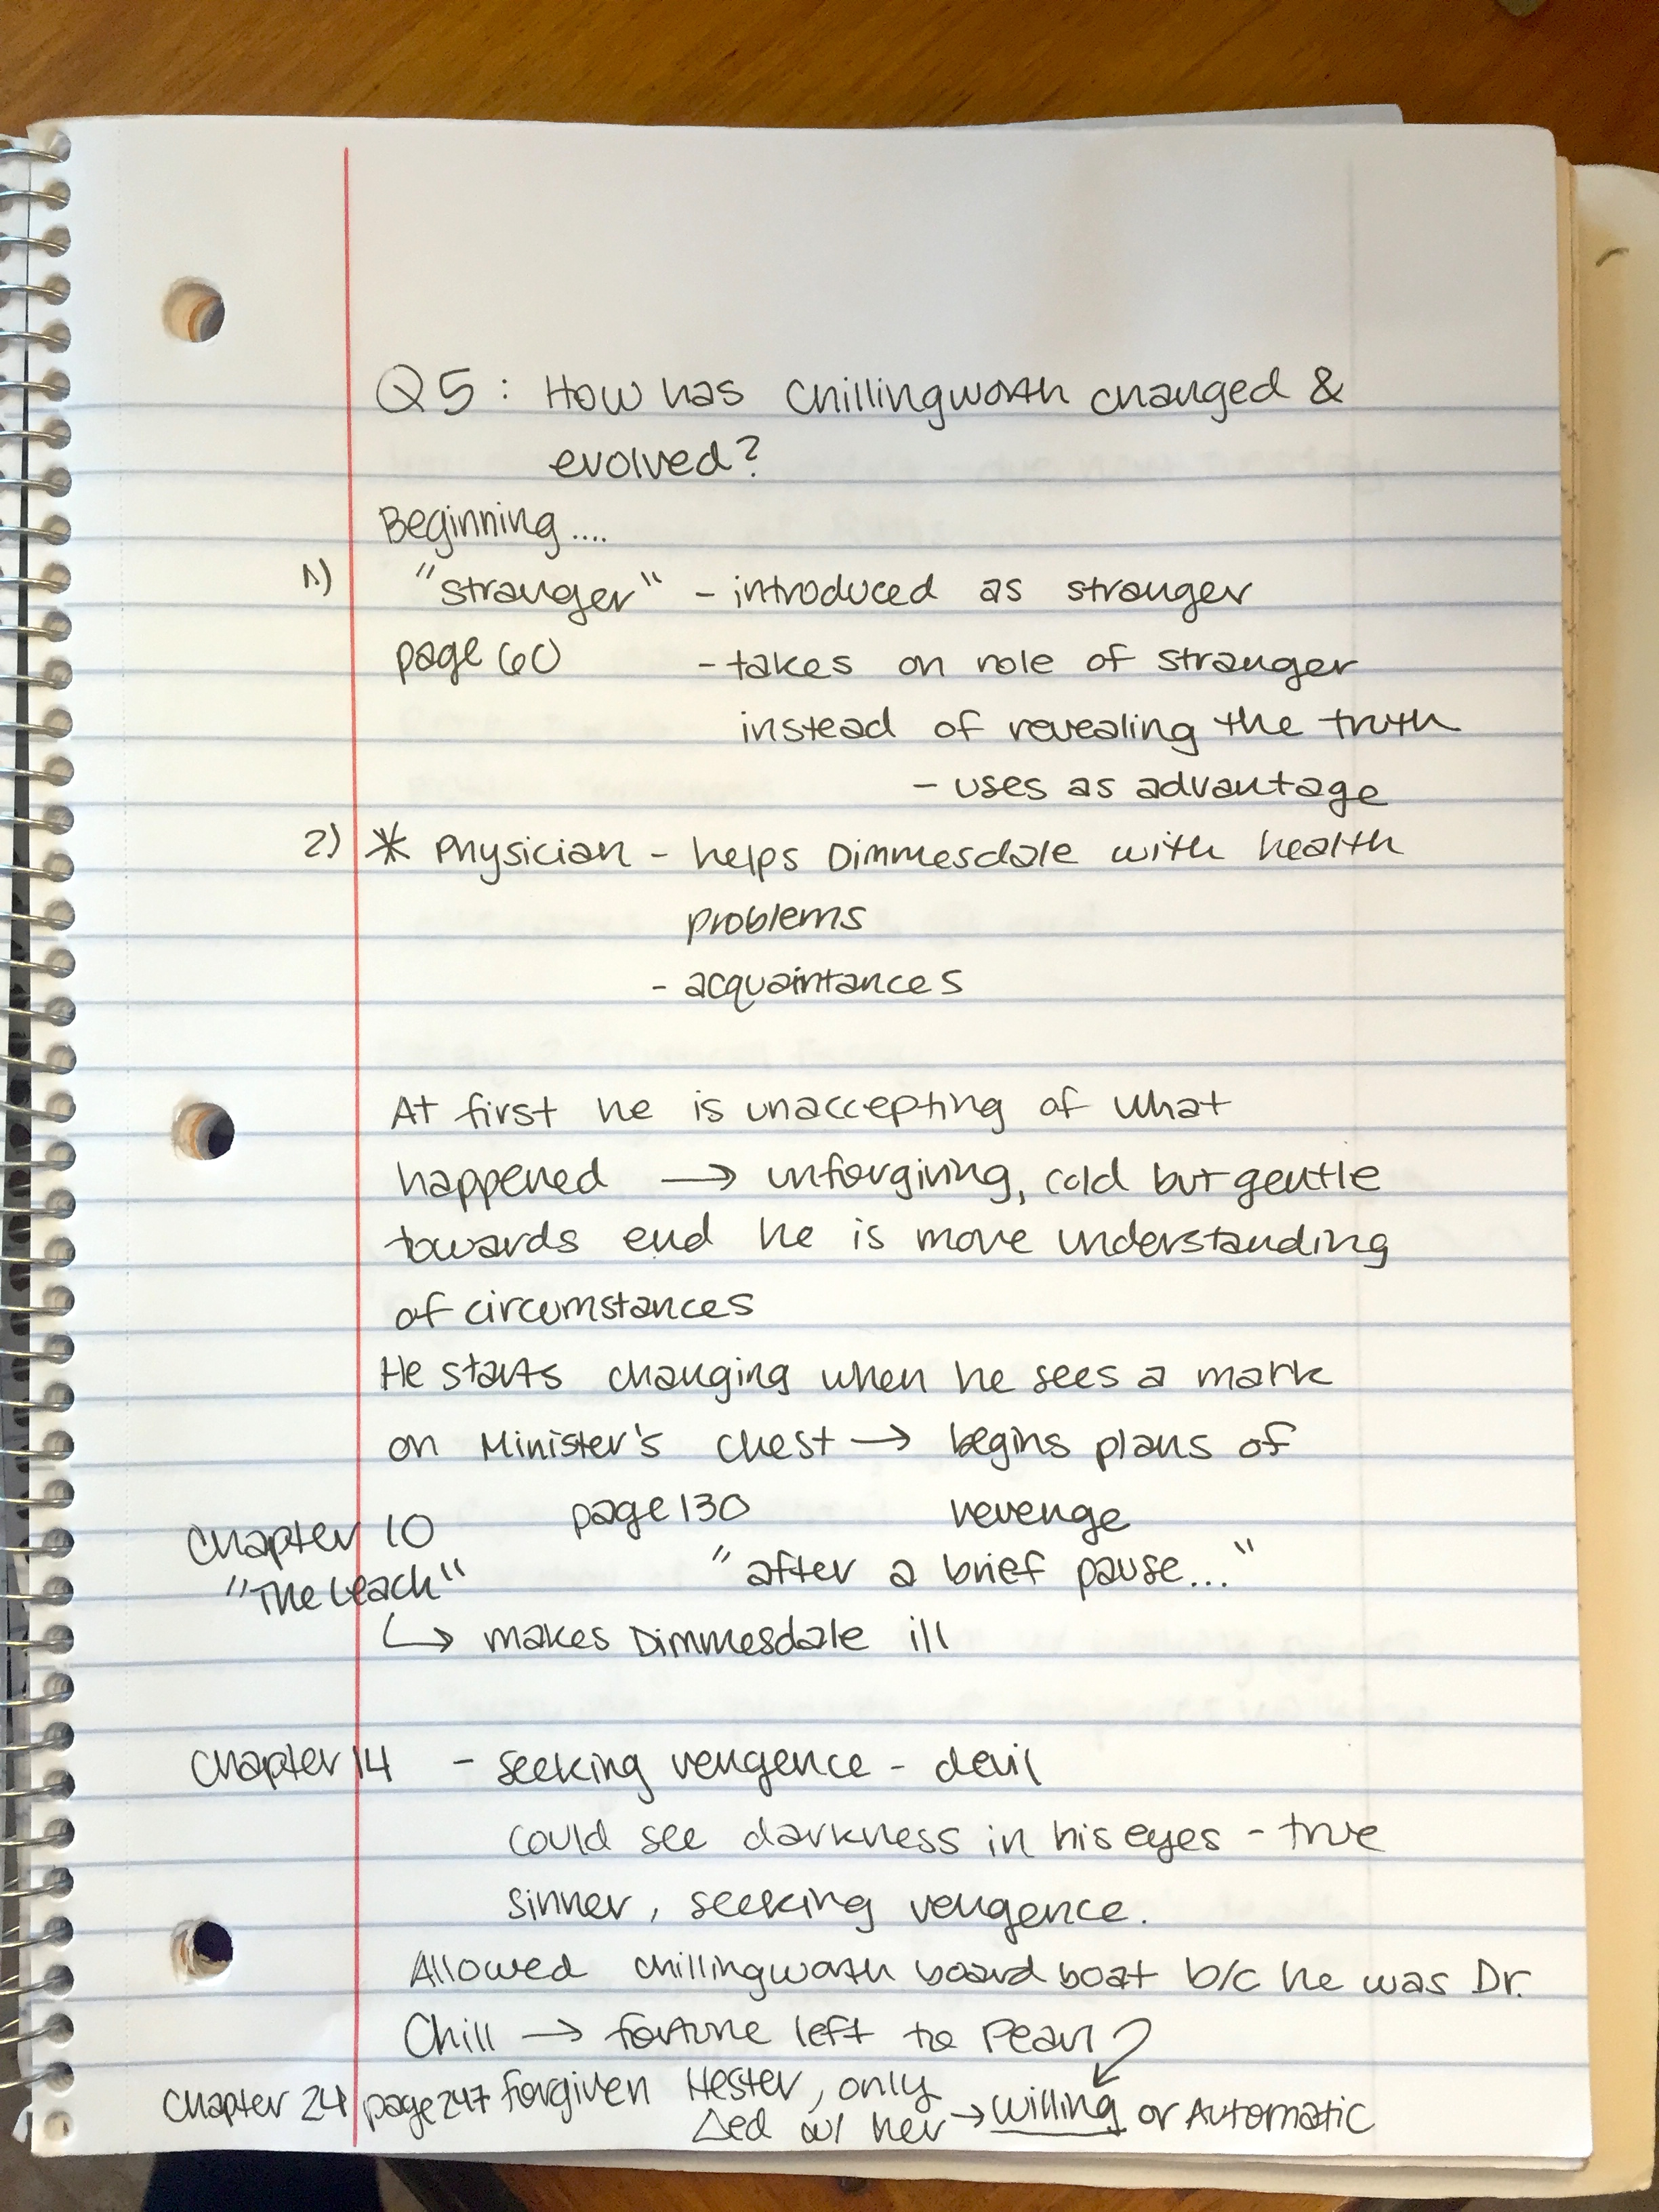 Q5: How has Chillingworth changed &
evolved?
Beginning....
1) "stranger" - introduced as stranger
page 60 - takes on role of stranger
instead of revealing the truth
- uses as advantage
2) * Physician - helps Dimmesdale with health
problems
- acquaintances
At first he is unaccepting of what
happened → unforgiving, cold but gentle
towards end he is more understanding
of circumstances
He starts changing when he sees a mark
on Minister's chest → begins plans of
page 130 revenge
Chapter 10
"after a brief pause..."
"The Leach"
↳ makes Dimmesdale ill
Chapter 14 - seeking vengence - devil
could see darkness in his eyes - true
sinner, seeking vengence.
Allowed Chillingworth board boat b/c he was Dr.
Chill → fortune left to Pearl?
Chapter 24 page 247 forgiven Hester, only
Δed w/ her → willing or Automatic